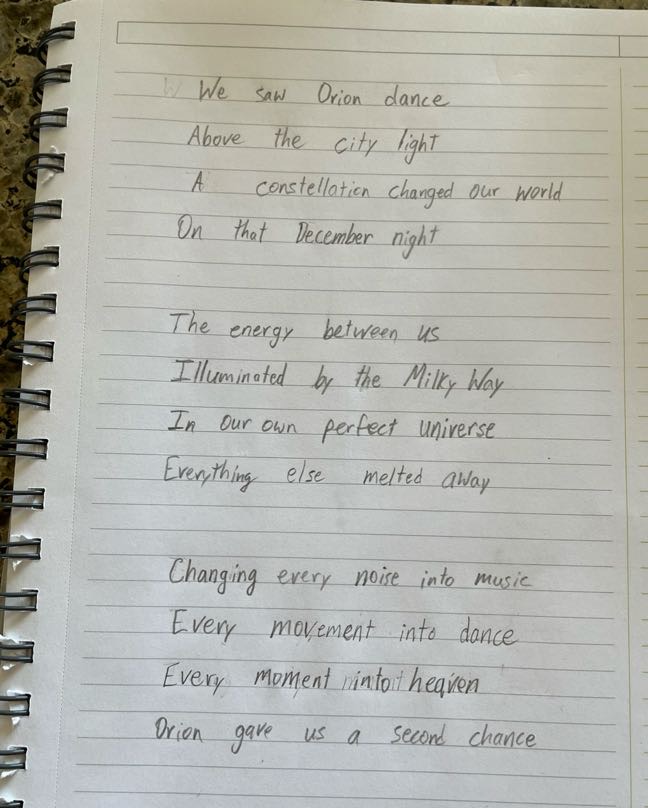 We saw Orion dance
Above the city light
A constellation changed our world
On that December night
The energy between us
Illuminated by the Milky Way
In our own perfect universe
Everything else melted away
Changing every noise into music
Every movement into dance
Every moment into heaven
Orion gave us a second chance